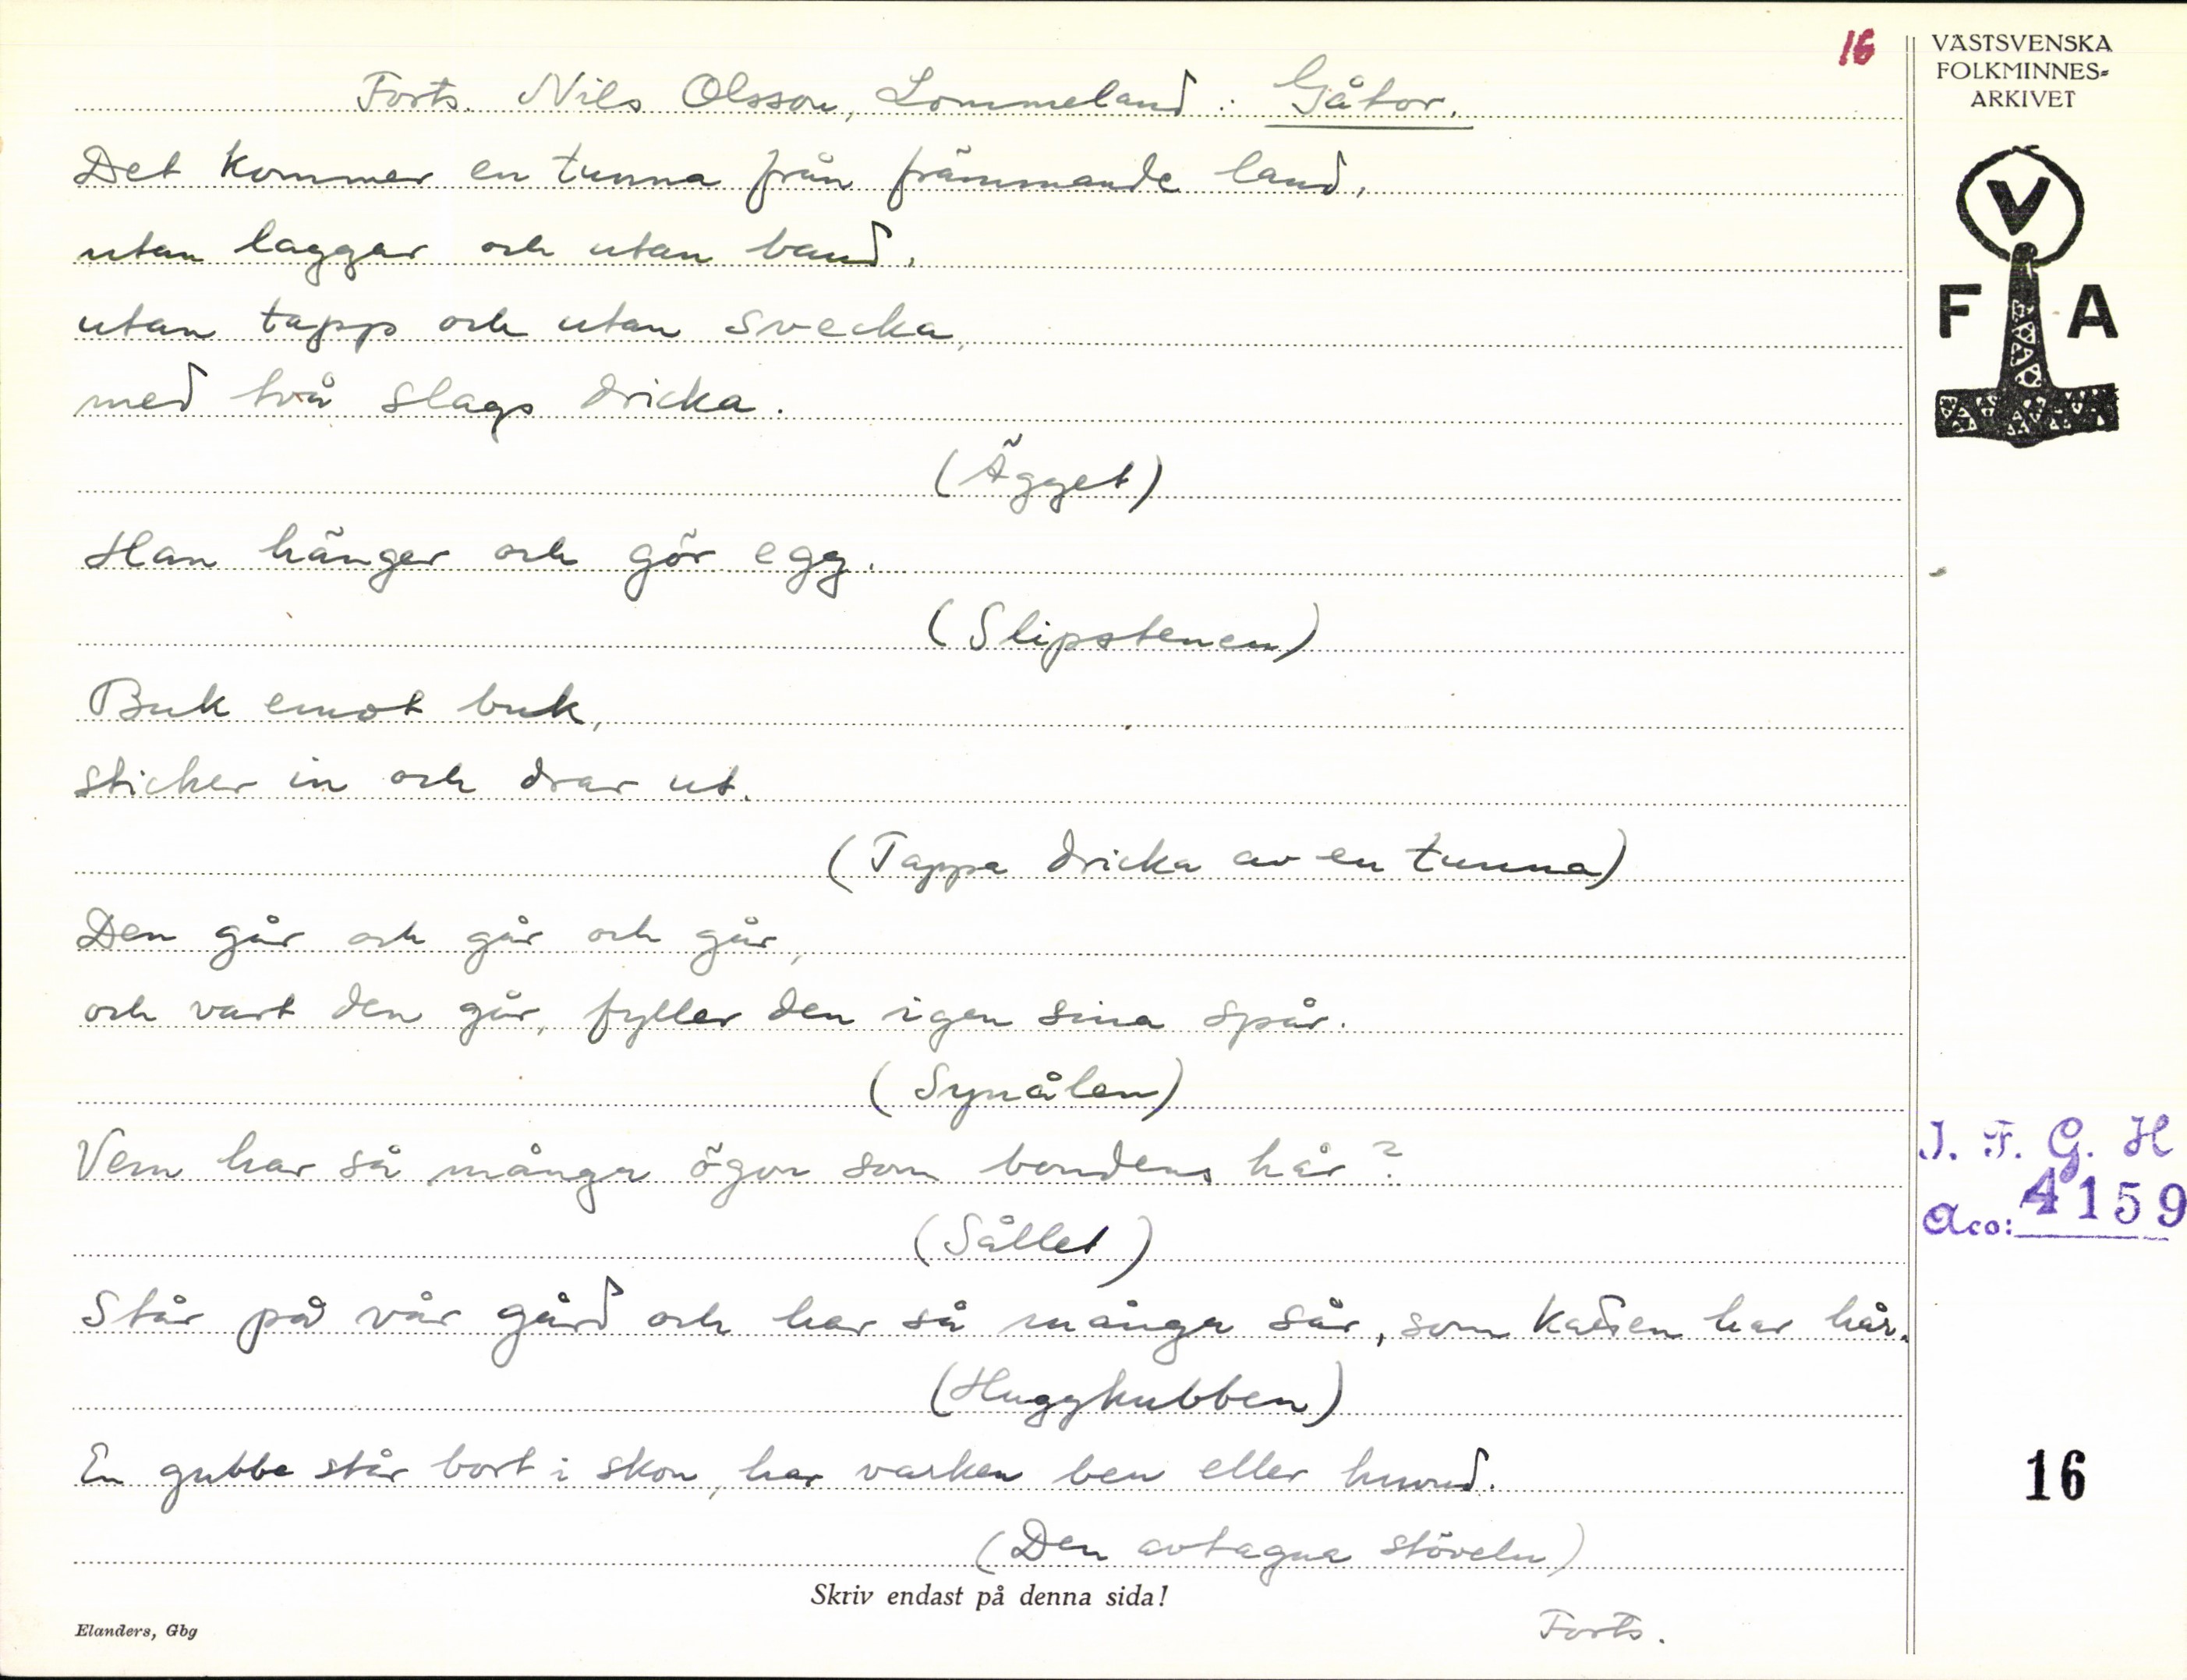 16
VÄSTSVENSKA
FOLKMINNES-
ARKIVET
Forts. Nils Olsson, Lommeland: Gåtor.
Det kommer en tunna från främmande land,
utan laggar och utan band,
utan tapp och utan svecka,
med två slags dricka.
(Ägget)
Han hänger och gör egg.
(Slipstenen)
Buk emot buk,
sticker in och drar ut.
(Tappa dricka av en tunna)
Den går och går och går,
och vart den går, fyller den igen sina spår.
(Synålen)
Vem har så många ögon som bondens hår?
(Sållet)
Står på vår gård och har så många sår, som katten har hår.
(Huggkubben)
En gubbe står bort i skon, har varken ben eller huvud.
(Den avtagna stöveln)
Skriv endast på denna sida!
Elanders, Gbg
Forts.
V
F A
I. F. G. H
Acc: 4159
16